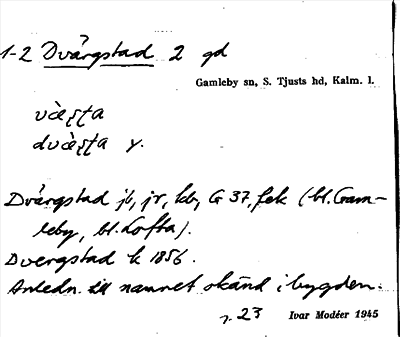 1-2 Dvärgstad 2 gd
Gamleby sn, S. Tjusts hd, Kalm. l.
dvä̀ʂʈa y.
Dvärgstad jb, jr, kb, G 37, fek (bl. Gam-
leby, bl. Lofta).
Dvergstad k 1856.
Anledn. till namnet okänd i bygden.
r. 23 Ivar Modéer 1945